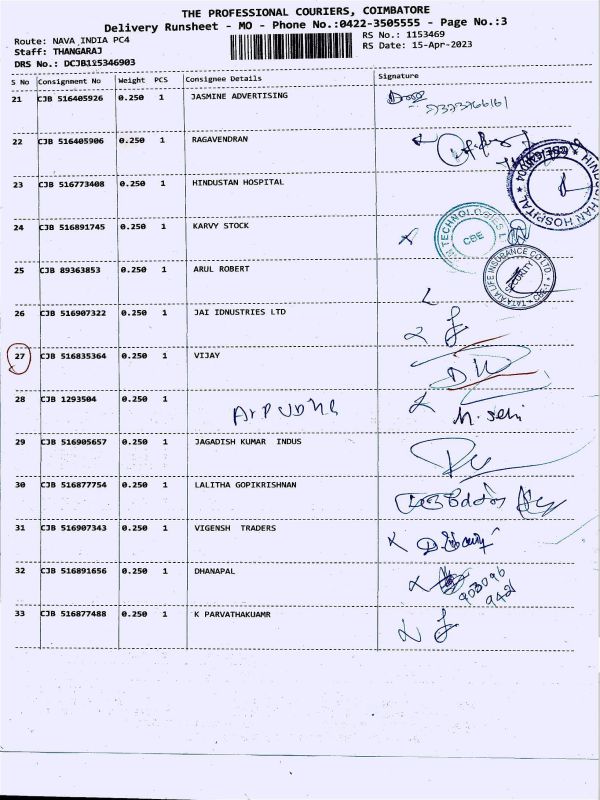 THE PROFESSIONAL COURIERS, COIMBATORE
Delivery Runsheet - MO - Phone No.:0422-3505555 - Page No.:3
Route: NAVA INDIA PC4
RS No.: 1153469
Staff: THANGARAJ
RS Date: 15-Apr-2023
DRS No.: DCJB125346903
S No Consignment No Weight PCS Consignee Details Signature
21 CJB 516405926 0.250 1 JASMINE ADVERTISING
22 CJB 516405906 0.250 1 RAGAVENDRAN
23 CJB 516773408 0.250 1 HINDUSTAN HOSPITAL
HINDUSTHAN HOSPITAL
24 CJB 516891745 0.250 1 KARVY STOCK
TECHNOLOGIES
CBE
25 CJB 89363853 0.250 1 ARUL ROBERT
TATA AIA LIFE INSURANCE CO LTD
SECURITY
26 CJB 516907322 0.250 1 JAI IDNUSTRIES LTD
27 CJB 516835364 0.250 1 VIJAY
28 CJB 1293504 0.250 1
29 CJB 516905657 0.250 1 JAGADISH KUMAR INDUS
30 CJB 516877754 0.250 1 LALITHA GOPIKRISHNAN
31 CJB 516907343 0.250 1 VIGENSH TRADERS
32 CJB 516891656 0.250 1 DHANAPAL
33 CJB 516877488 0.250 1 K PARVATHAKUAMR